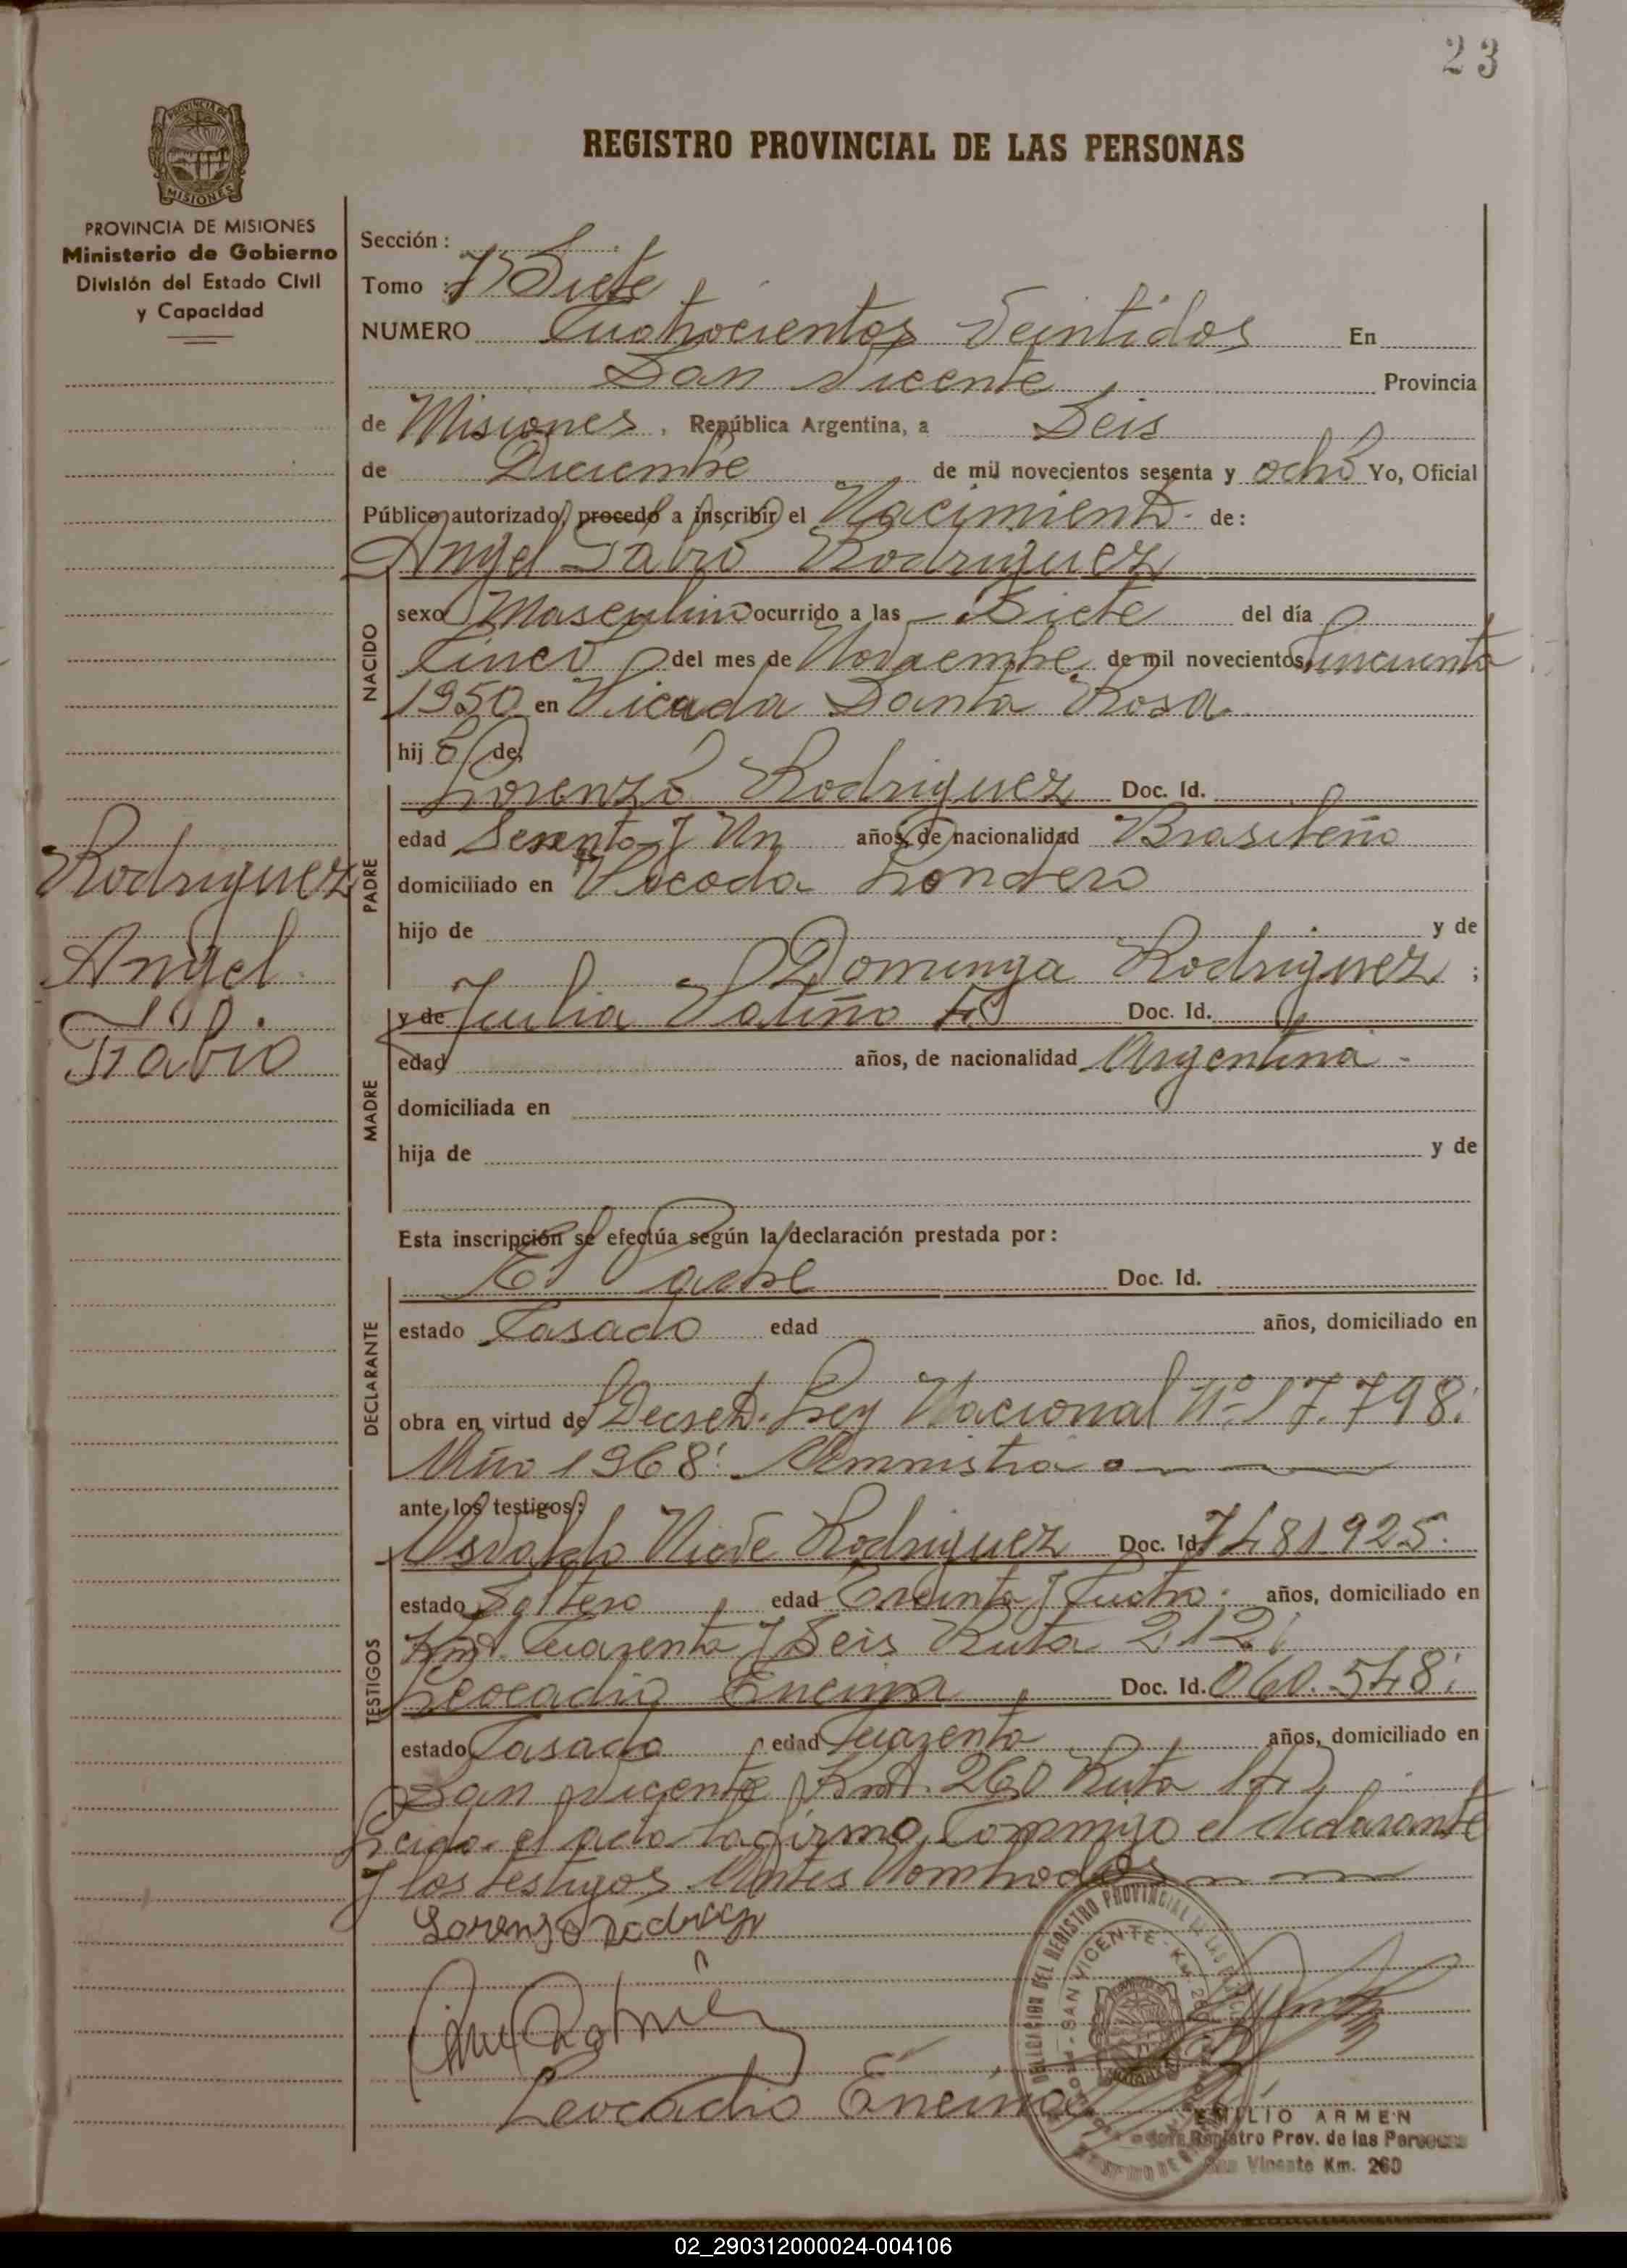 23
PROVINCIA DE MISIONES
MISIONES
REGISTRO PROVINCIAL DE LAS PERSONAS
PROVINCIA DE MISIONES
Ministerio de Gobierno
División del Estado Civil
y Capacidad
Sección :
Tomo : Siete
NUMERO Cuatrocientos Veintidos En
San Vicente, Provincia
de Misiones, República Argentina, a Seis
de Diciembre de mil novecientos sesenta y ocho Yo, Oficial
Público autorizado, procedo a inscribir el Nacimiento de:
Angel Fabio Rodriguez
NACIDO
sexo Masculino ocurrido a las Siete del día
Cinco del mes de Noviembre de mil novecientos Cincuenta
1950 en Picada Santa Rosa
hijo de
PADRE
Lorenzo Rodriguez Doc. Id.
edad Sesenta y Un años de nacionalidad Brasileño
domiciliado en Picada Londero
hijo de y de
Dominga Rodriguez ;
Rodriguez
Angel
Fabio
MADRE
y de Julia Patiño Doc. Id.
edad años, de nacionalidad Argentina -
domiciliada en
hija de y de
Esta inscripción se efectúa según la declaración prestada por :
DECLARANTE
El Padre Doc. Id.
estado Casado edad años, domiciliado en
obra en virtud de Decreto Ley Nacional Nº 17.798.
Año 1968.
ante los testigos:
TESTIGOS
Osvaldo Rodriguez Doc. Id. 7481925.
estado Soltero edad Treinta y Cuatro años, domiciliado en
Km. Cuarenta y Seis Ruta 212
Leocadio Encina Doc. Id. 060.548
estado Casado edad Cuarenta años, domiciliado en
San Vicente Km. 260 Ruta
Leida el acta la firmo Commigo el declarante
y los testigos Antes Nombrados
Lorenzo Rodrigez
Leocadio Encina
EMILIO ARMEN
Registro Prov. de las Personas
San Vicente Km. 260
02_290312000024-004106